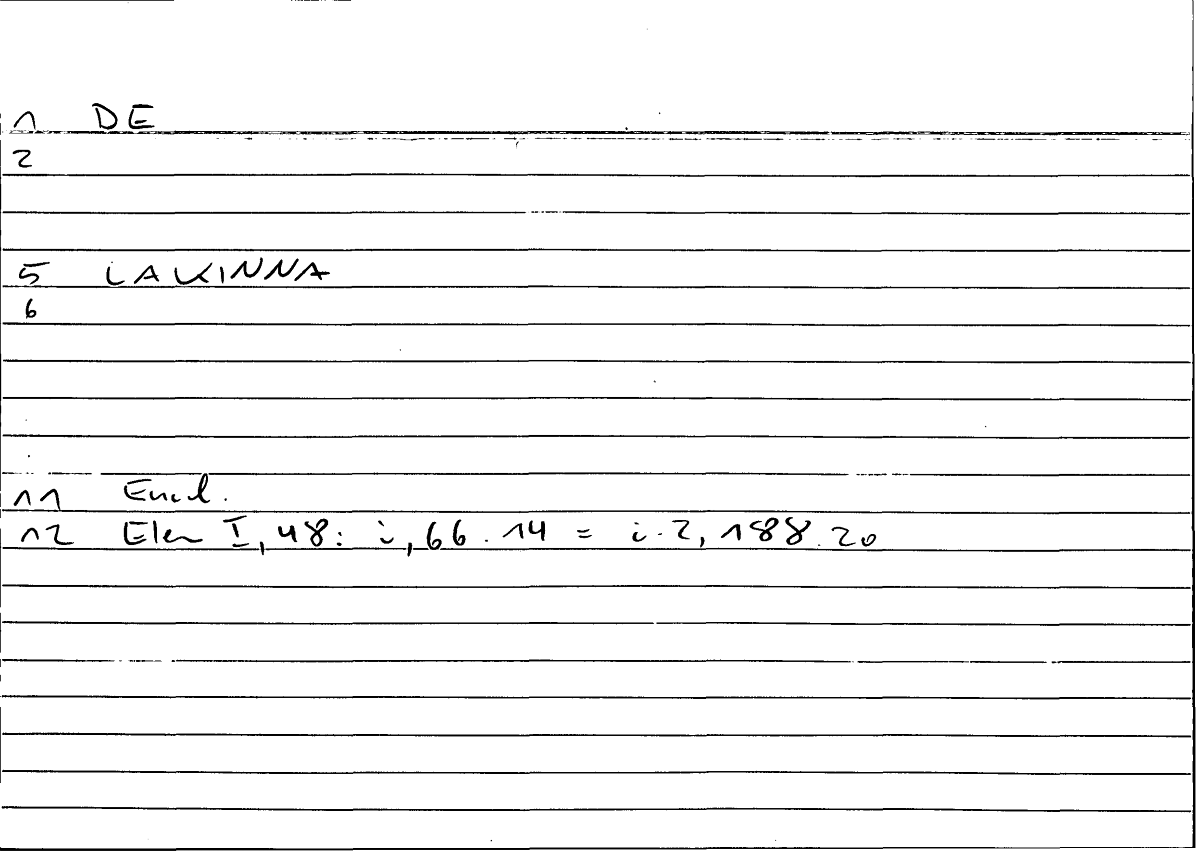 1 DE
2
5 LAKINNA
6
11 Eucl.
12 Elem I,48: i,66.14 = i.2,188.20